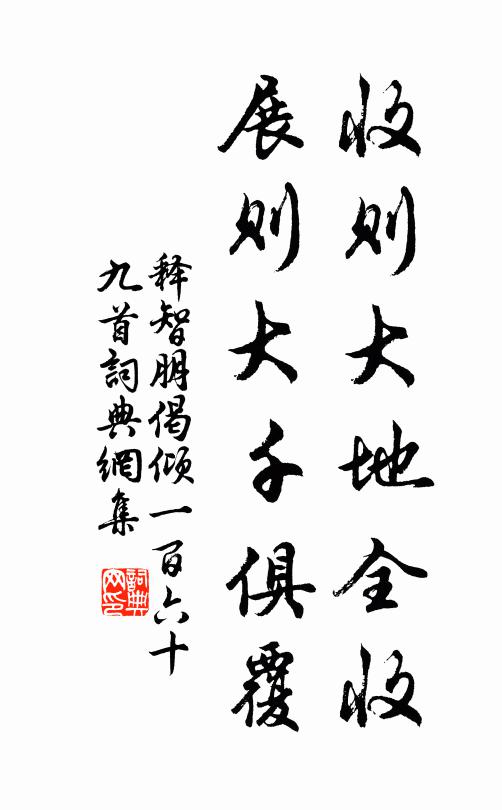 收则大地全收
展则大千俱覆
释智朋偈倾一百六十
九首詞典網集
詞典
网印